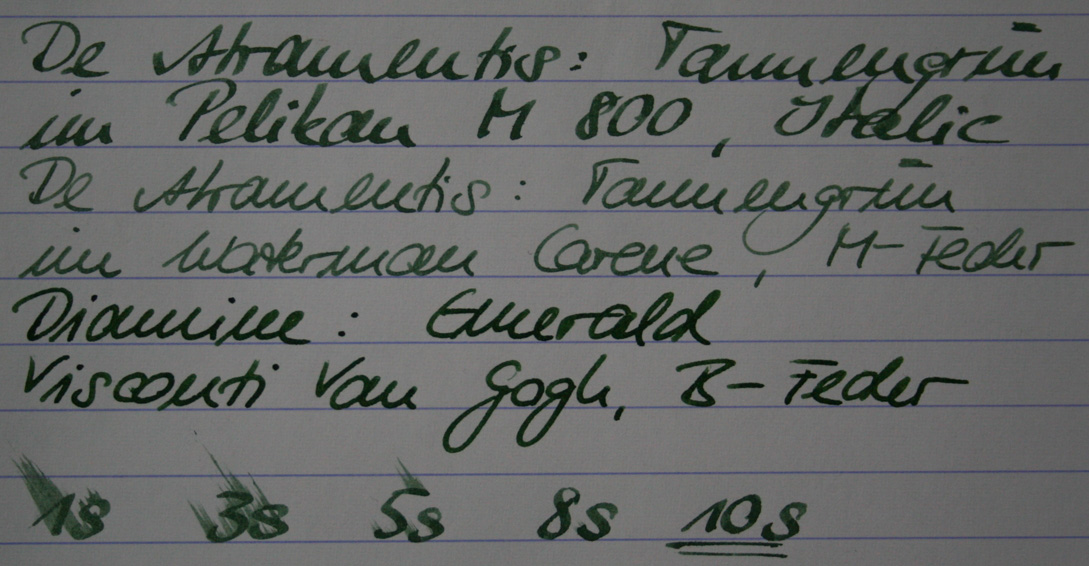 De Atramentis: Tannengrün
im Pelikan M 800, Italic
De Atramentis: Tannengrün
im Waterman Carene, M-Feder
Diamine: Emerald
Visconti Van Gogh, B-Feder
1s 3s 5s 8s 10s